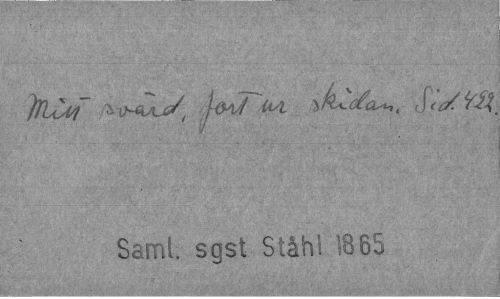 Mitt svärd, fort ur skidan. Sid. 422.
Saml. sgst Ståhl 1865